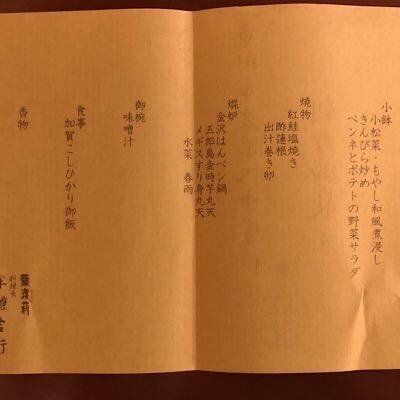 小鉢
小松菜・もやし和風煮浸し
きんぴら炒め
ペンネとポテトの野菜サラダ
焼物
紅鮭塩焼き
酢蓮根
出汁巻き卵
焜炉
金沢はんぺん鍋
五郎島金時芋丸天
メギスすり身丸天
水菜 春雨
御椀
味噌汁
食事
加賀こしひかり御飯
香物
料理長